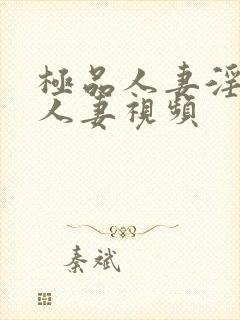 極品人妻淫
人妻視頻
秦斌